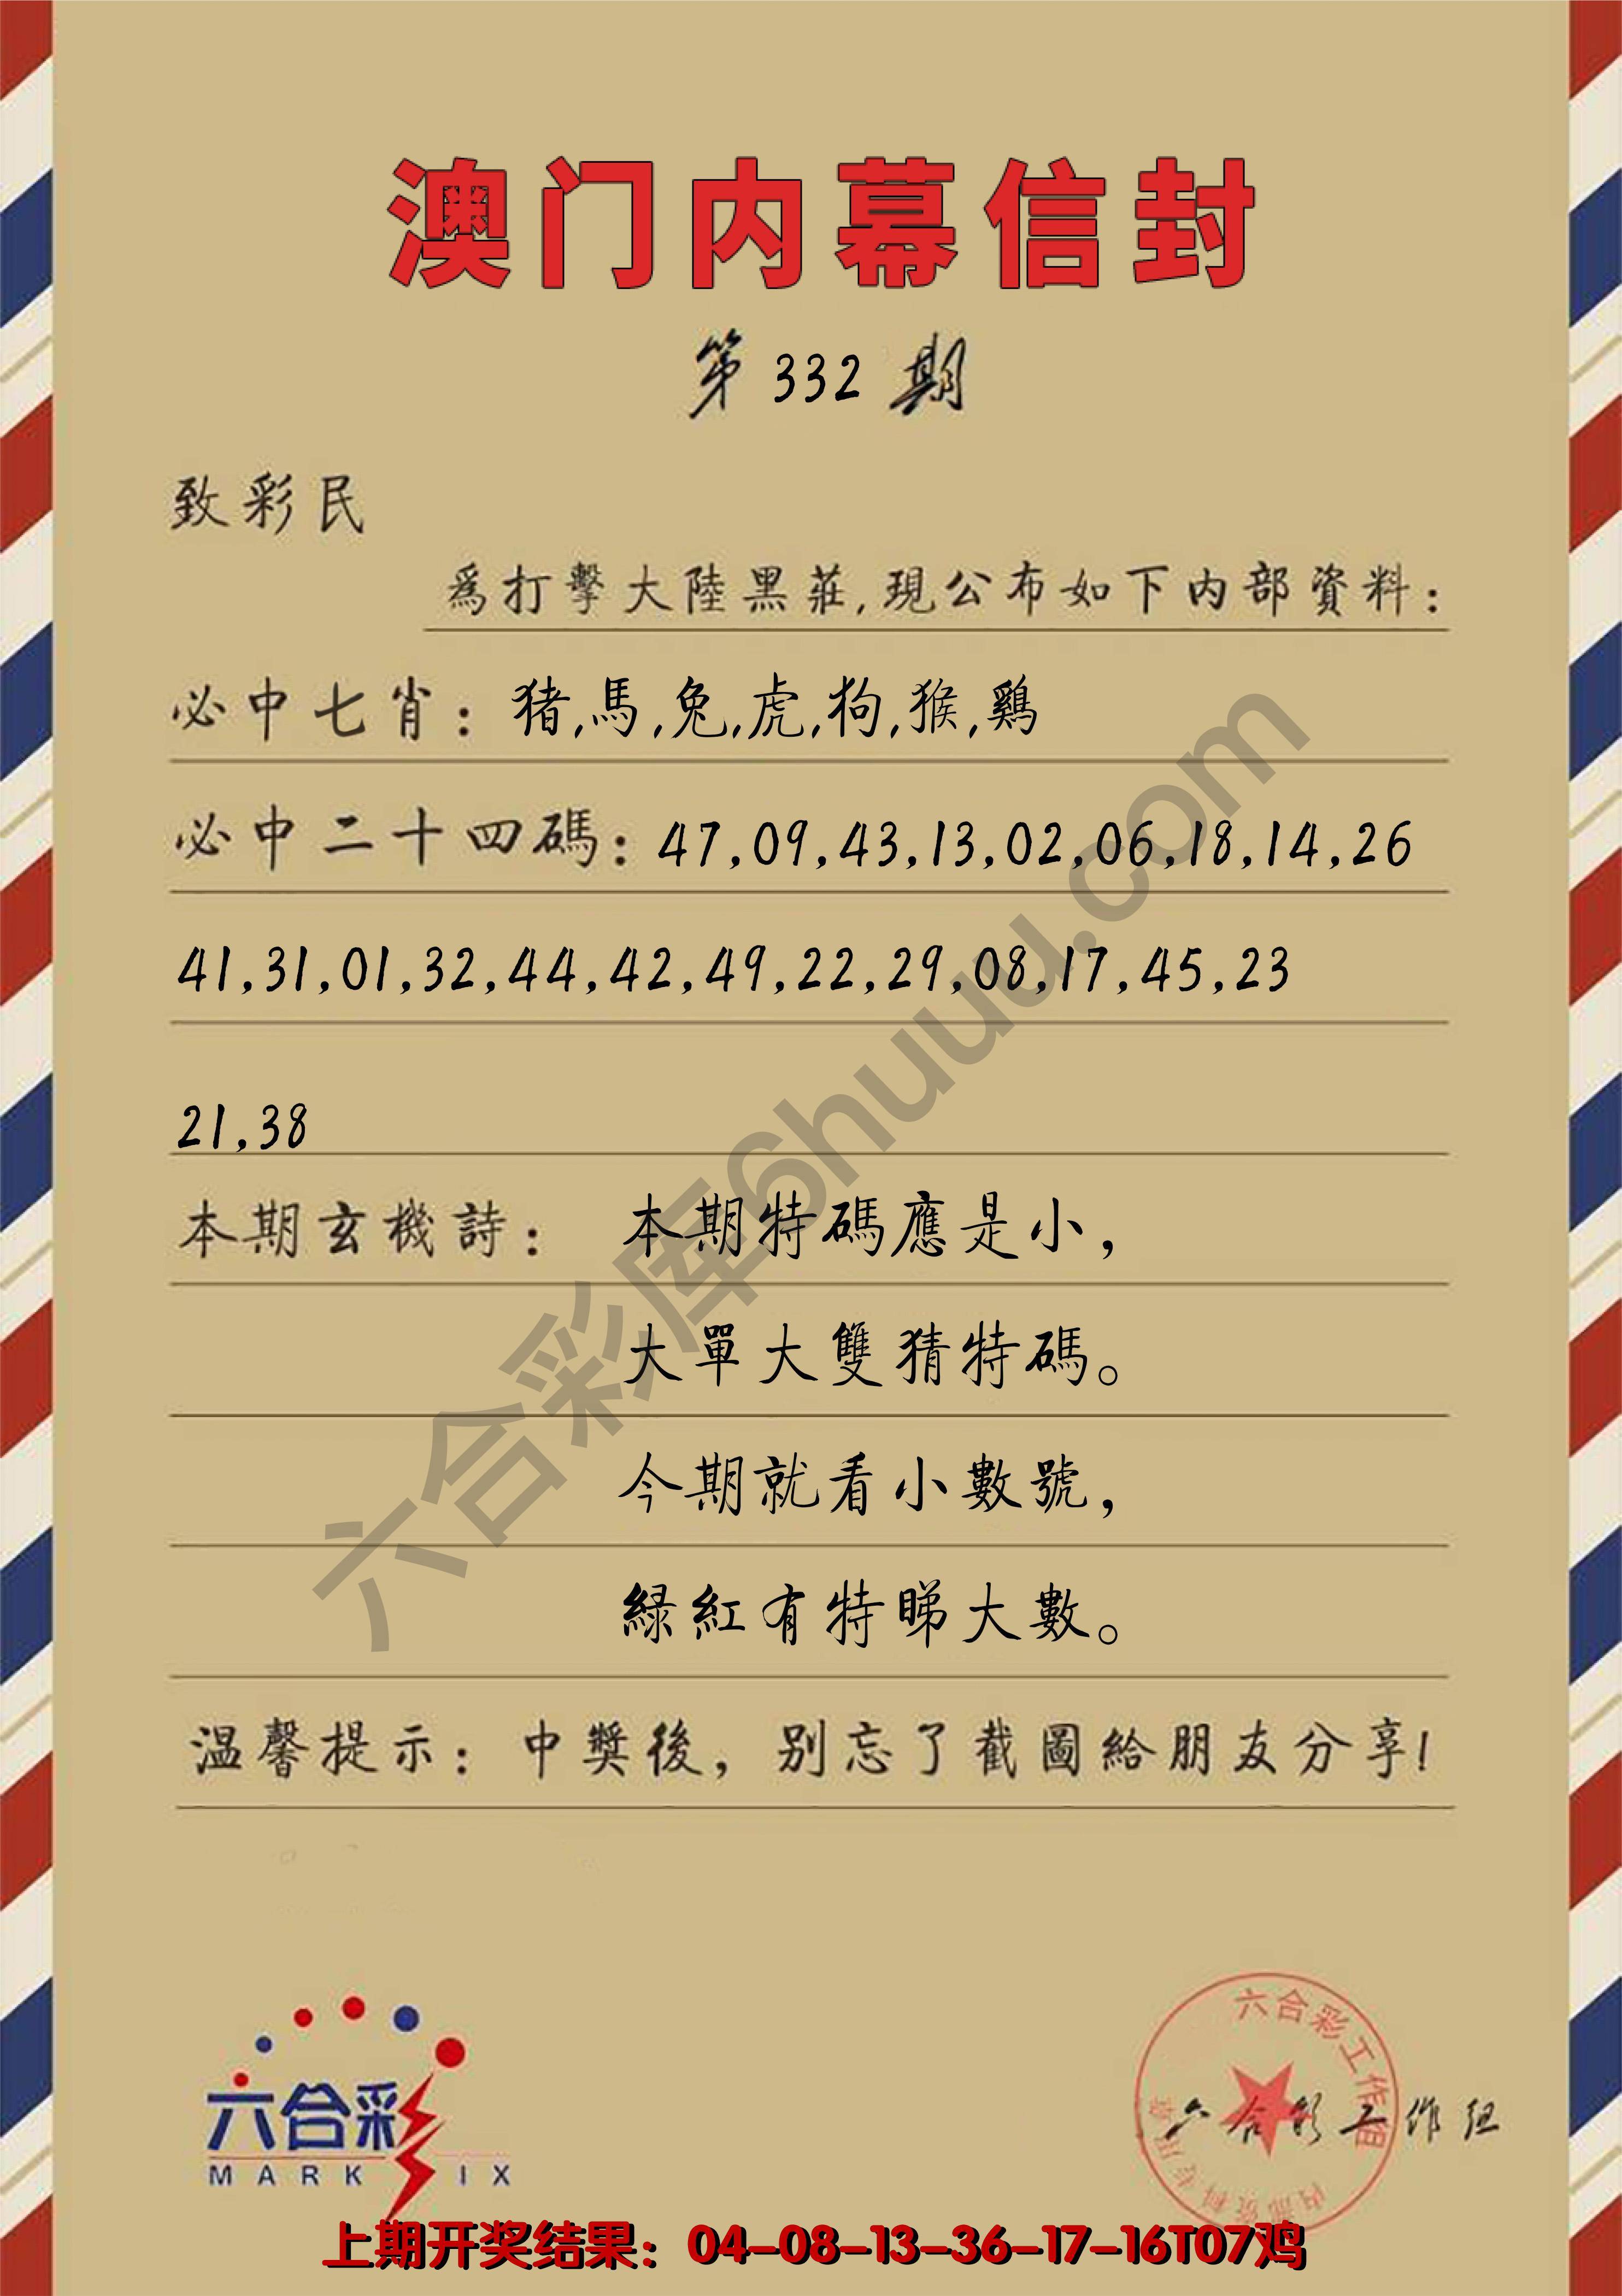 澳门内幕信封
第 332 期
致彩民
爲打擊大陸黑莊,現公布如下内部資料:
必中七肖: 猪,馬,兔,虎,狗,猴,鷄
必中二十四碼: 47,09,43,13,02,06,18,14,26
41,31,01,32,44,42,49,22,29,08,17,45,23
21,38
本期玄機詩: 本期特碼應是小,
大單大雙猜特碼。
今期就看小數號,
綠紅有特睇大數。
温馨提示: 中獎後, 别忘了截圖給朋友分享!
六合彩库6huuu.com
六合彩
MARK IX
六合彩工作组
内部资料专用章
六合彩工作组
上期开奖结果: 04-08-13-36-17-16T07鸡